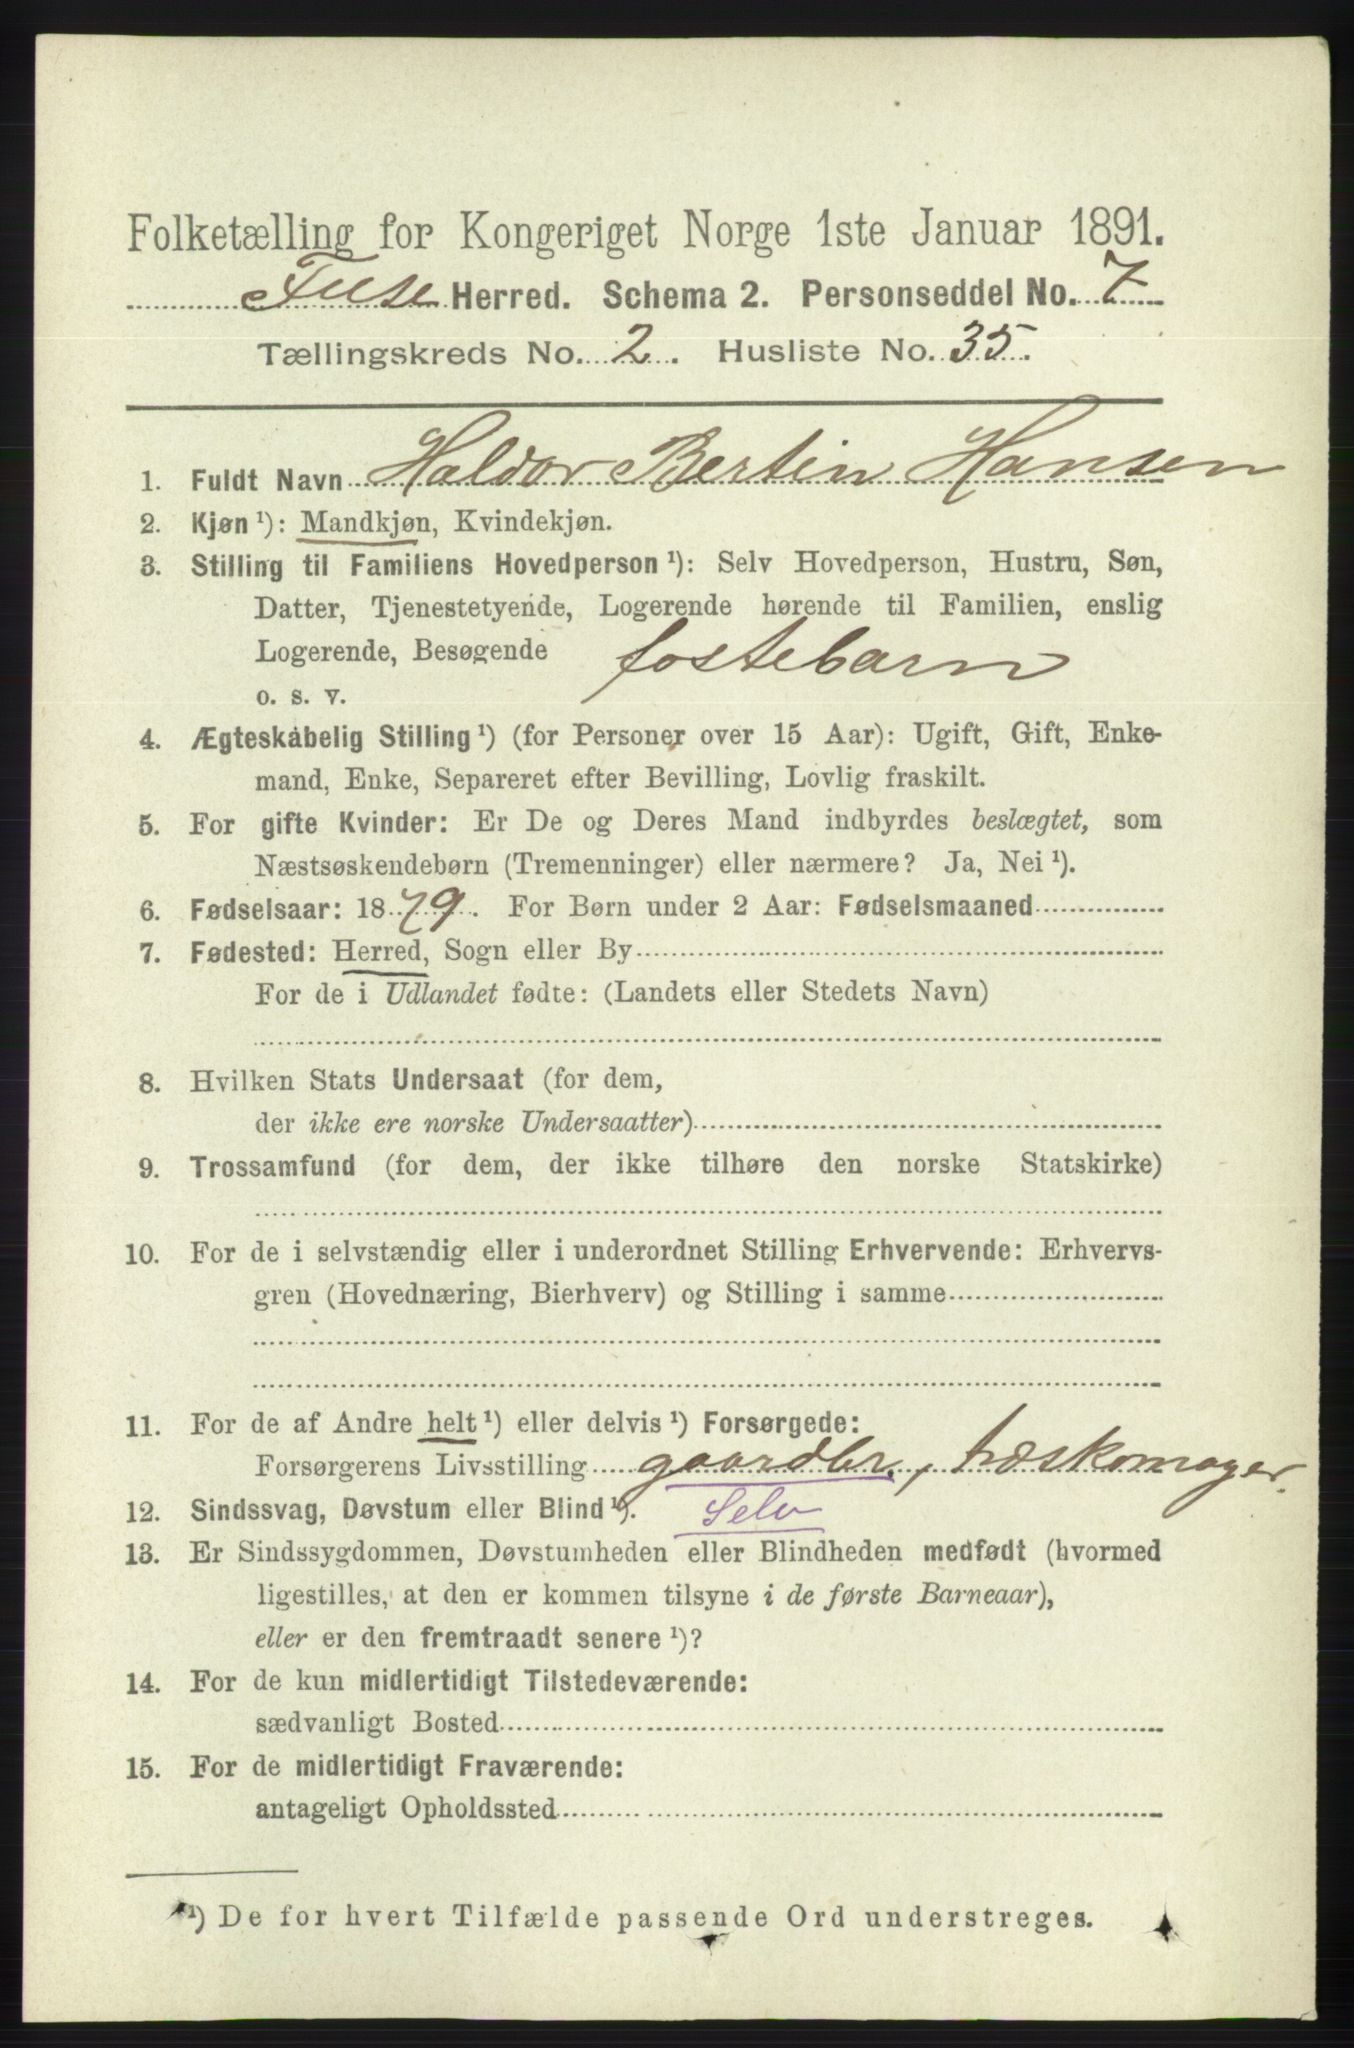 Folketælling for Kongeriget Norge 1ste Januar 1891.
Fuse Herred. Schema 2. Personseddel No. 7
Tællingskreds No. 2. Husliste No. 35.
1. Fuldt Navn Haldor Bertin Hansen
2. Kjøn ¹): Mandkjøn, Kvindekjøn.
3. Stilling til Familiens Hovedperson ¹): Selv Hovedperson, Hustru, Søn,
Datter, Tjenestetyende, Logerende hørende til Familien, enslig
Logerende, Besøgende fostebarn
o. s. v.
4. Ægteskabelig Stilling ¹) (for Personer over 15 Aar): Ugift, Gift, Enke-
mand, Enke, Separeret efter Bevilling, Lovlig fraskilt.
5. For gifte Kvinder: Er De og Deres Mand indbyrdes beslægtet, som
Næstsøskendebørn (Tremenninger) eller nærmere? Ja, Nei ¹).
6. Fødselsaar: 1879. For Børn under 2 Aar: Fødselsmaaned
7. Fødested: Herred, Sogn eller By
For de i Udlandet fødte: (Landets eller Stedets Navn)
8. Hvilken Stats Undersaat (for dem,
der ikke ere norske Undersaatter)
9. Trossamfund (for dem, der ikke tilhøre den norske Statskirke)
10. For de i selvstændig eller i underordnet Stilling Erhvervende: Erhvervs-
gren (Hovednæring, Bierhverv) og Stilling i samme
11. For de af Andre helt ¹) eller delvis ¹) Forsørgede:
Forsørgerens Livsstilling gaardbr., træskomager.
12. Sindssvag, Døvstum eller Blind ¹). Selv
13. Er Sindssygdommen, Døvstumheden eller Blindheden medfødt (hvormed
ligestilles, at den er kommen tilsyne i de første Barneaar),
eller er den fremtraadt senere ¹)?
14. For de kun midlertidigt Tilstedeværende:
sædvanligt Bosted
15. For de midlertidigt Fraværende:
antageligt Opholdssted
¹) De for hvert Tilfælde passende Ord understreges.